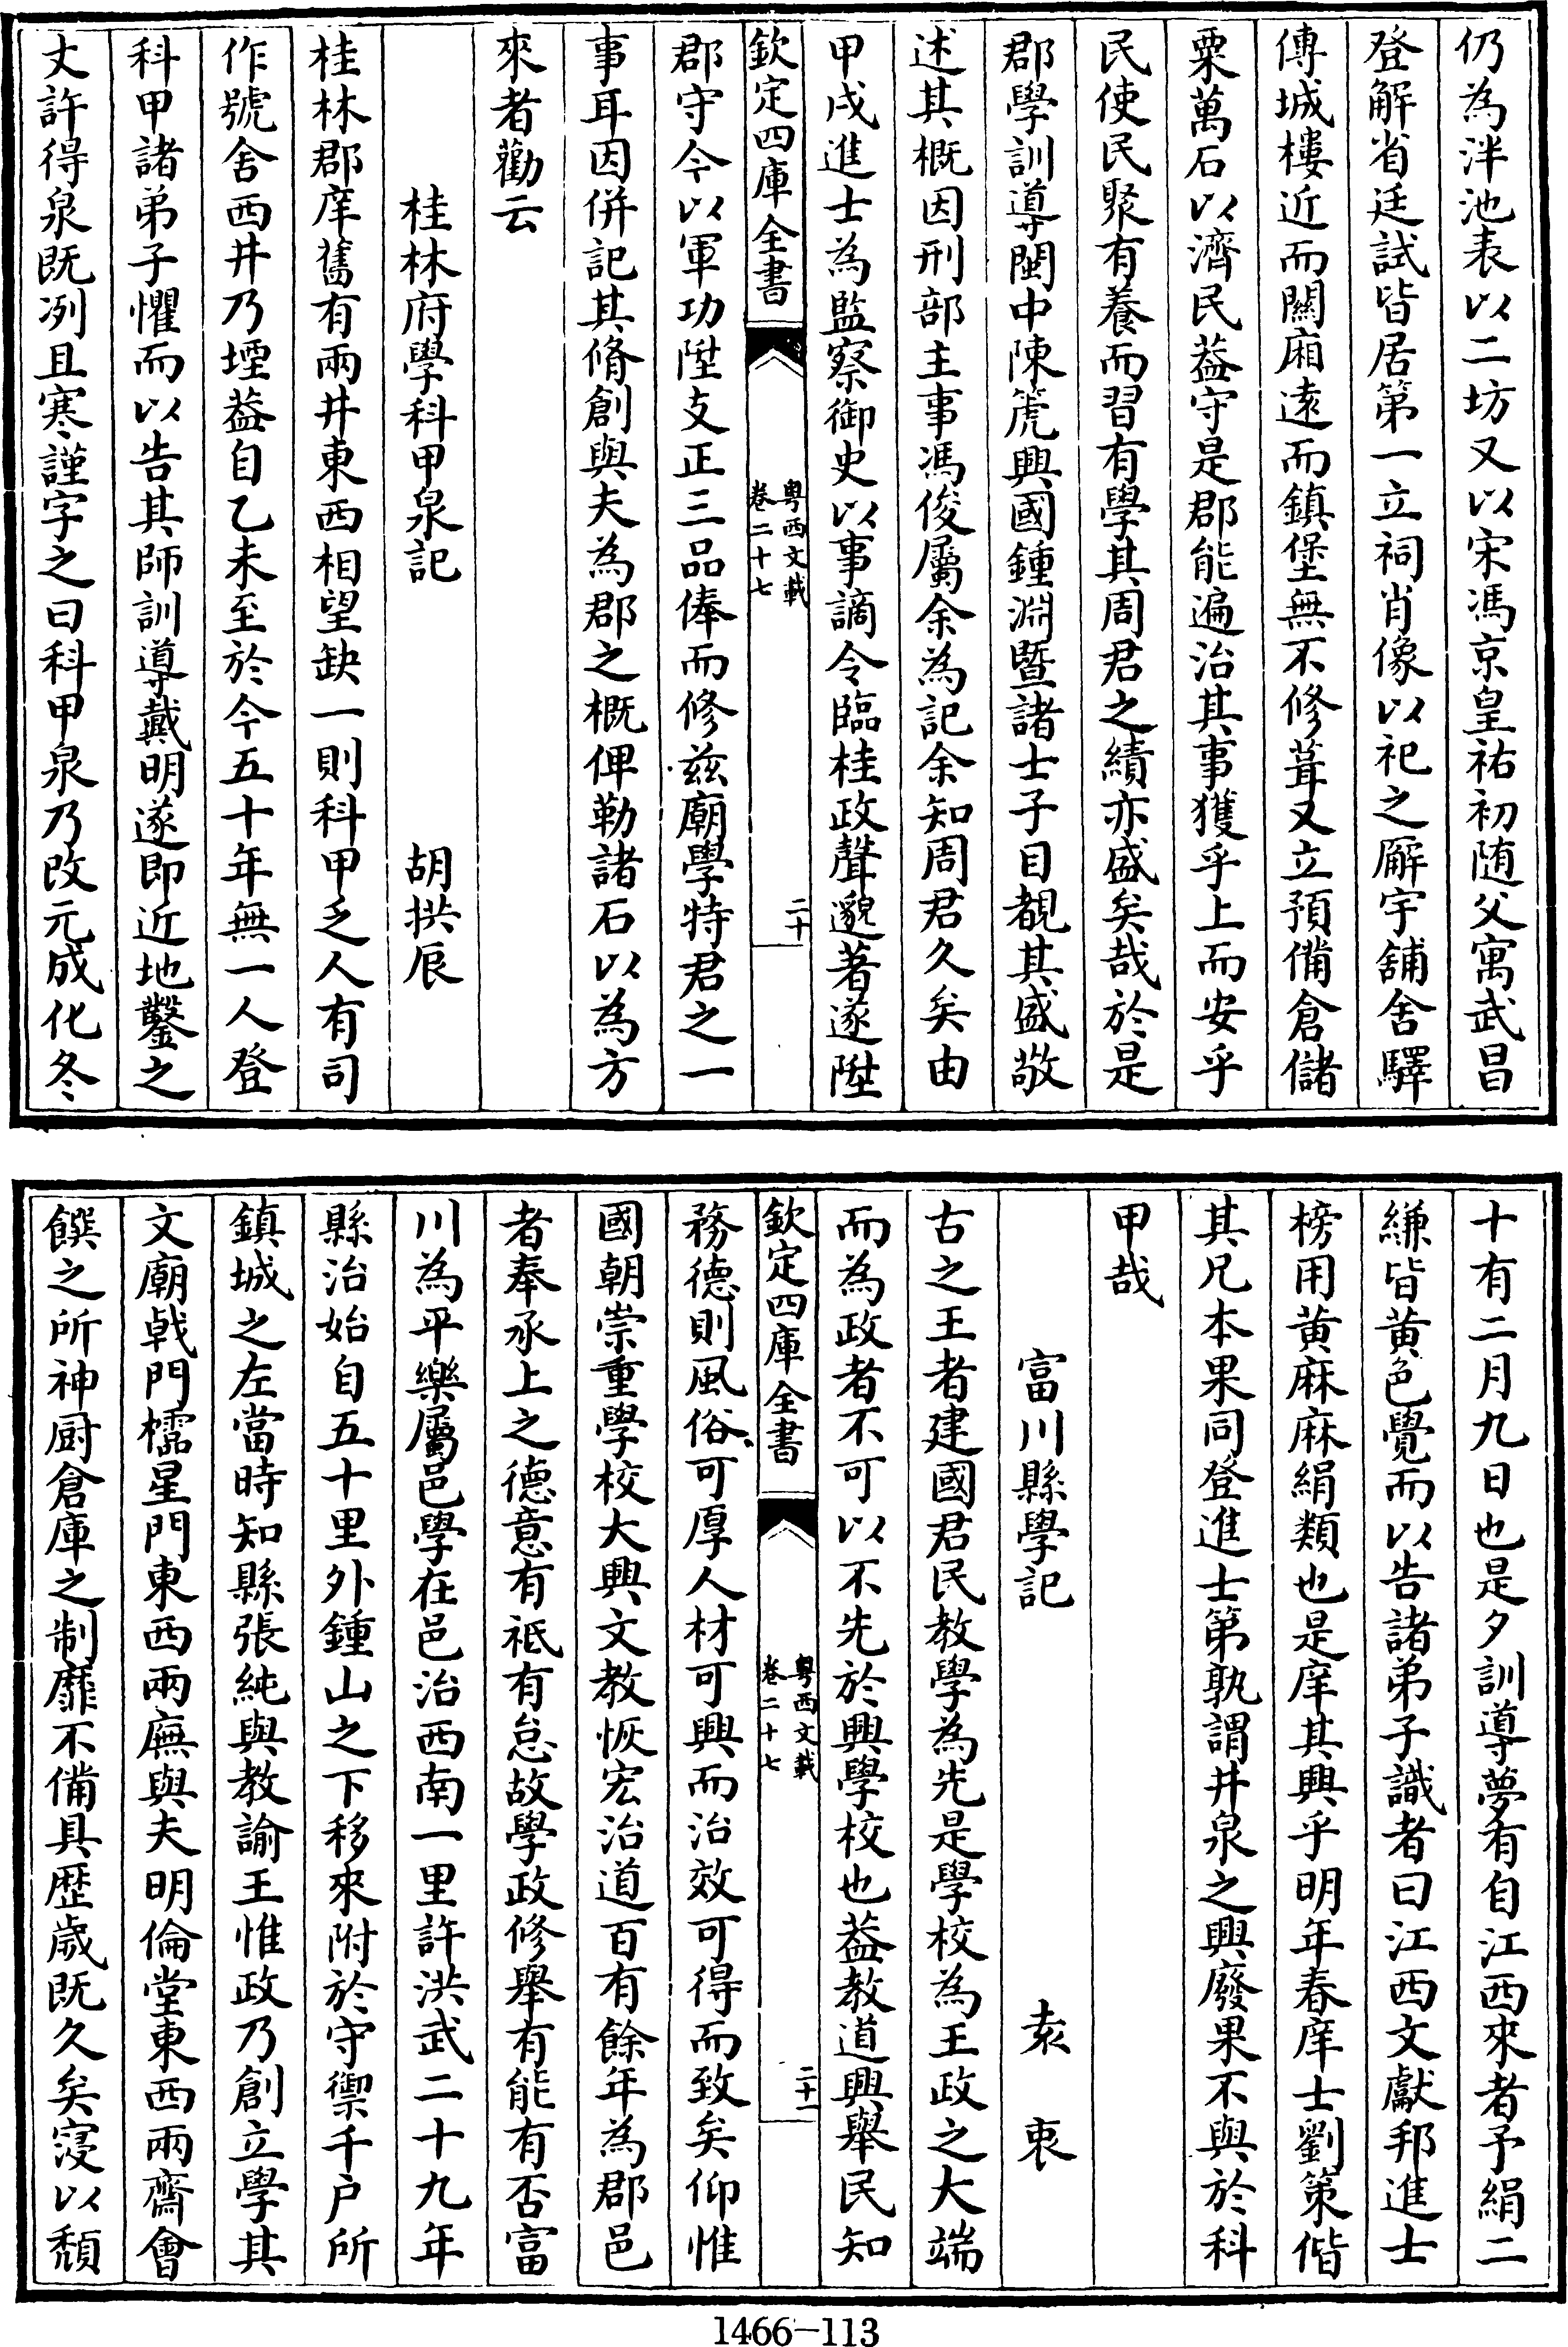 仍為泮池表以二坊又以宋馮京皇祐初随父寓武昌
登解省廷試皆居第一立祠肖像以祀之廨宇舖舍驛
傳城樓近而關廂遠而鎮堡無不修葺又立預備倉儲
粟萬石以濟民益守是郡能遍治其事獲乎上而安乎
民使民聚有養而習有學其周君之績亦盛矣哉於是
郡學訓導閩中陳箎興國鍾淵暨諸士子目覩其盛敬
述其概因刑部主事馮俊屬余為記余知周君久矣由
甲戌進士為監察御史以事謫令臨桂政聲邈著遂陞
欽定四庫全書
粤西文載
卷二十七
二十
郡守今以軍功陞支正三品俸而修兹廟學特君之一
事耳因併記其脩創與夫為郡之概俾勒諸石以為方
來者勸云
桂林府學科甲泉記 胡拱辰
桂林郡庠舊有兩井東西相望缺一則科甲乏人有司
作號舍西井乃堙葢自乙未至於今五十年無一人登
科甲諸弟子懼而以告其師訓導戴明遂即近地鑿之
丈許得泉既冽且寒謹字之曰科甲泉乃改元成化冬
十有二月九日也是夕訓導夢有自江西來者予絹二
縑皆黄色覺而以告諸弟子識者曰江西文獻邦進士
榜用黄麻麻絹類也是庠其興乎明年春庠士劉策偕
其兄本果同登進士第孰謂井泉之興廢果不與於科
甲哉
富川縣學記 袁衷
古之王者建國君民教學為先是學校為王政之大端
而為政者不可以不先於興學校也葢教道興舉民知
欽定四庫全書
粤西文載
卷二十七
二十一
務德則風俗可厚人材可興而治效可得而致矣仰惟
國朝崇重學校大興文教恢宏治道百有餘年為郡邑
者奉承上之德意有祗有怠故學政修舉有能有否富
川為平樂屬邑學在邑治西南一里許洪武二十九年
縣治始自五十里外鍾山之下移來附於守禦千户所
鎮城之左當時知縣張純與教諭王惟政乃創立學其
文廟戟門櫺星門東西兩廡與夫明倫堂東西兩齋會
饌之所神厨倉庫之制靡不備具歴歲既久矣寖以頽
1466—113